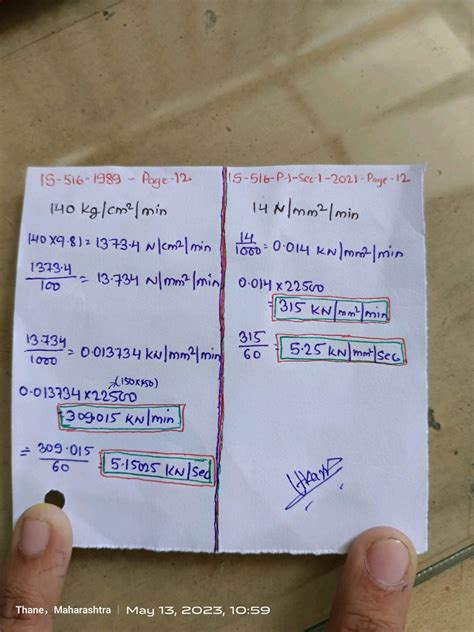 IS-516-1989 - Page-12
140 kg/cm²/min
140×9.81=1373.4 N/cm²/min
1373.4/100 = 13.734 N/mm²/min
13.734/1000 = 0.013734 KN/mm²/min
(150×150)
0.013734×22500
=309.015 KN/min
= 309.015/60 = 5.15025 KN/Sec
IS-516-P-1-Sec-1-2021-Page-12
14 N/mm²/min
14/1000 = 0.014 KN/mm²/min
0.014×22500
= 315 KN/mm²/min
315/60 = 5.25 KN/mm²/Sec
Thane, Maharashtra | May 13, 2023, 10:59